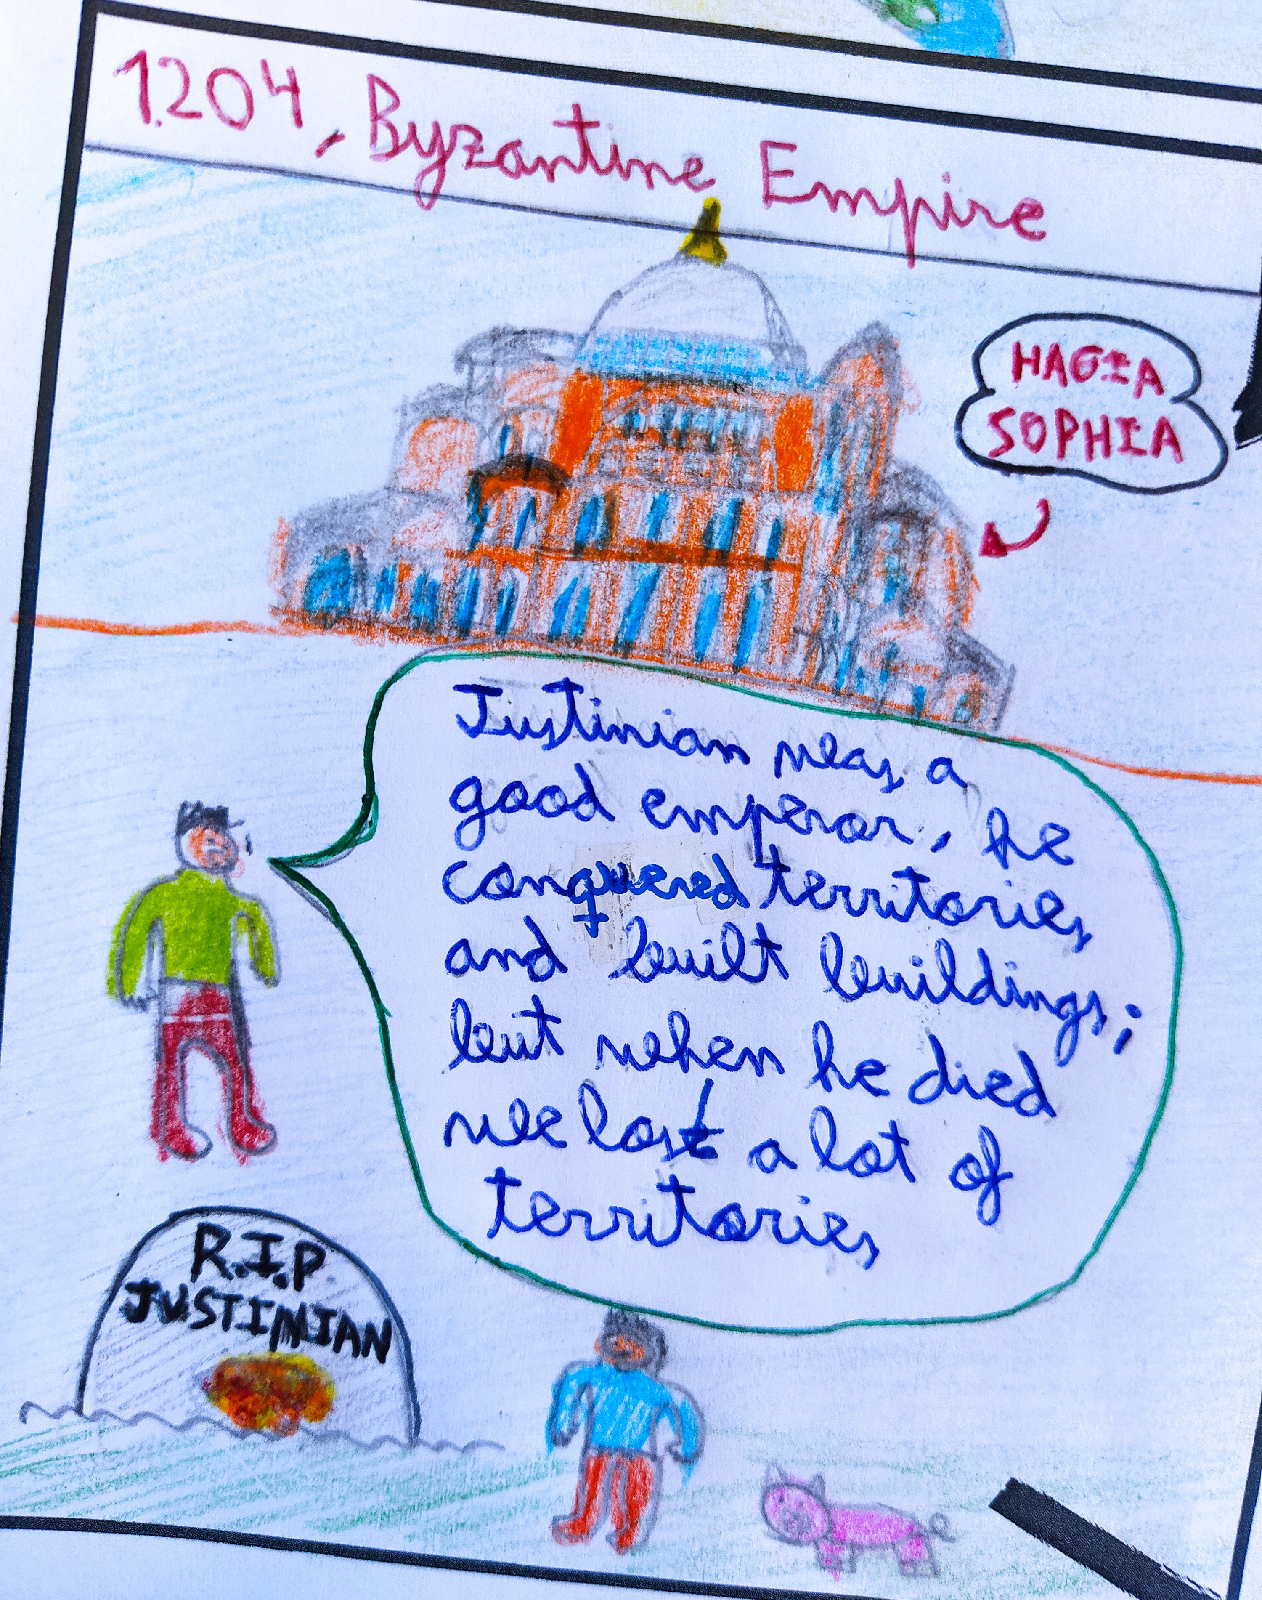 1204, Byzantine Empire
HAGIA
SOPHIA
Justinian was a
good emperor, he
conquered territories
and built buildings;
but when he died
we lost a lot of
territories
R.I.P.
JUSTINIAN